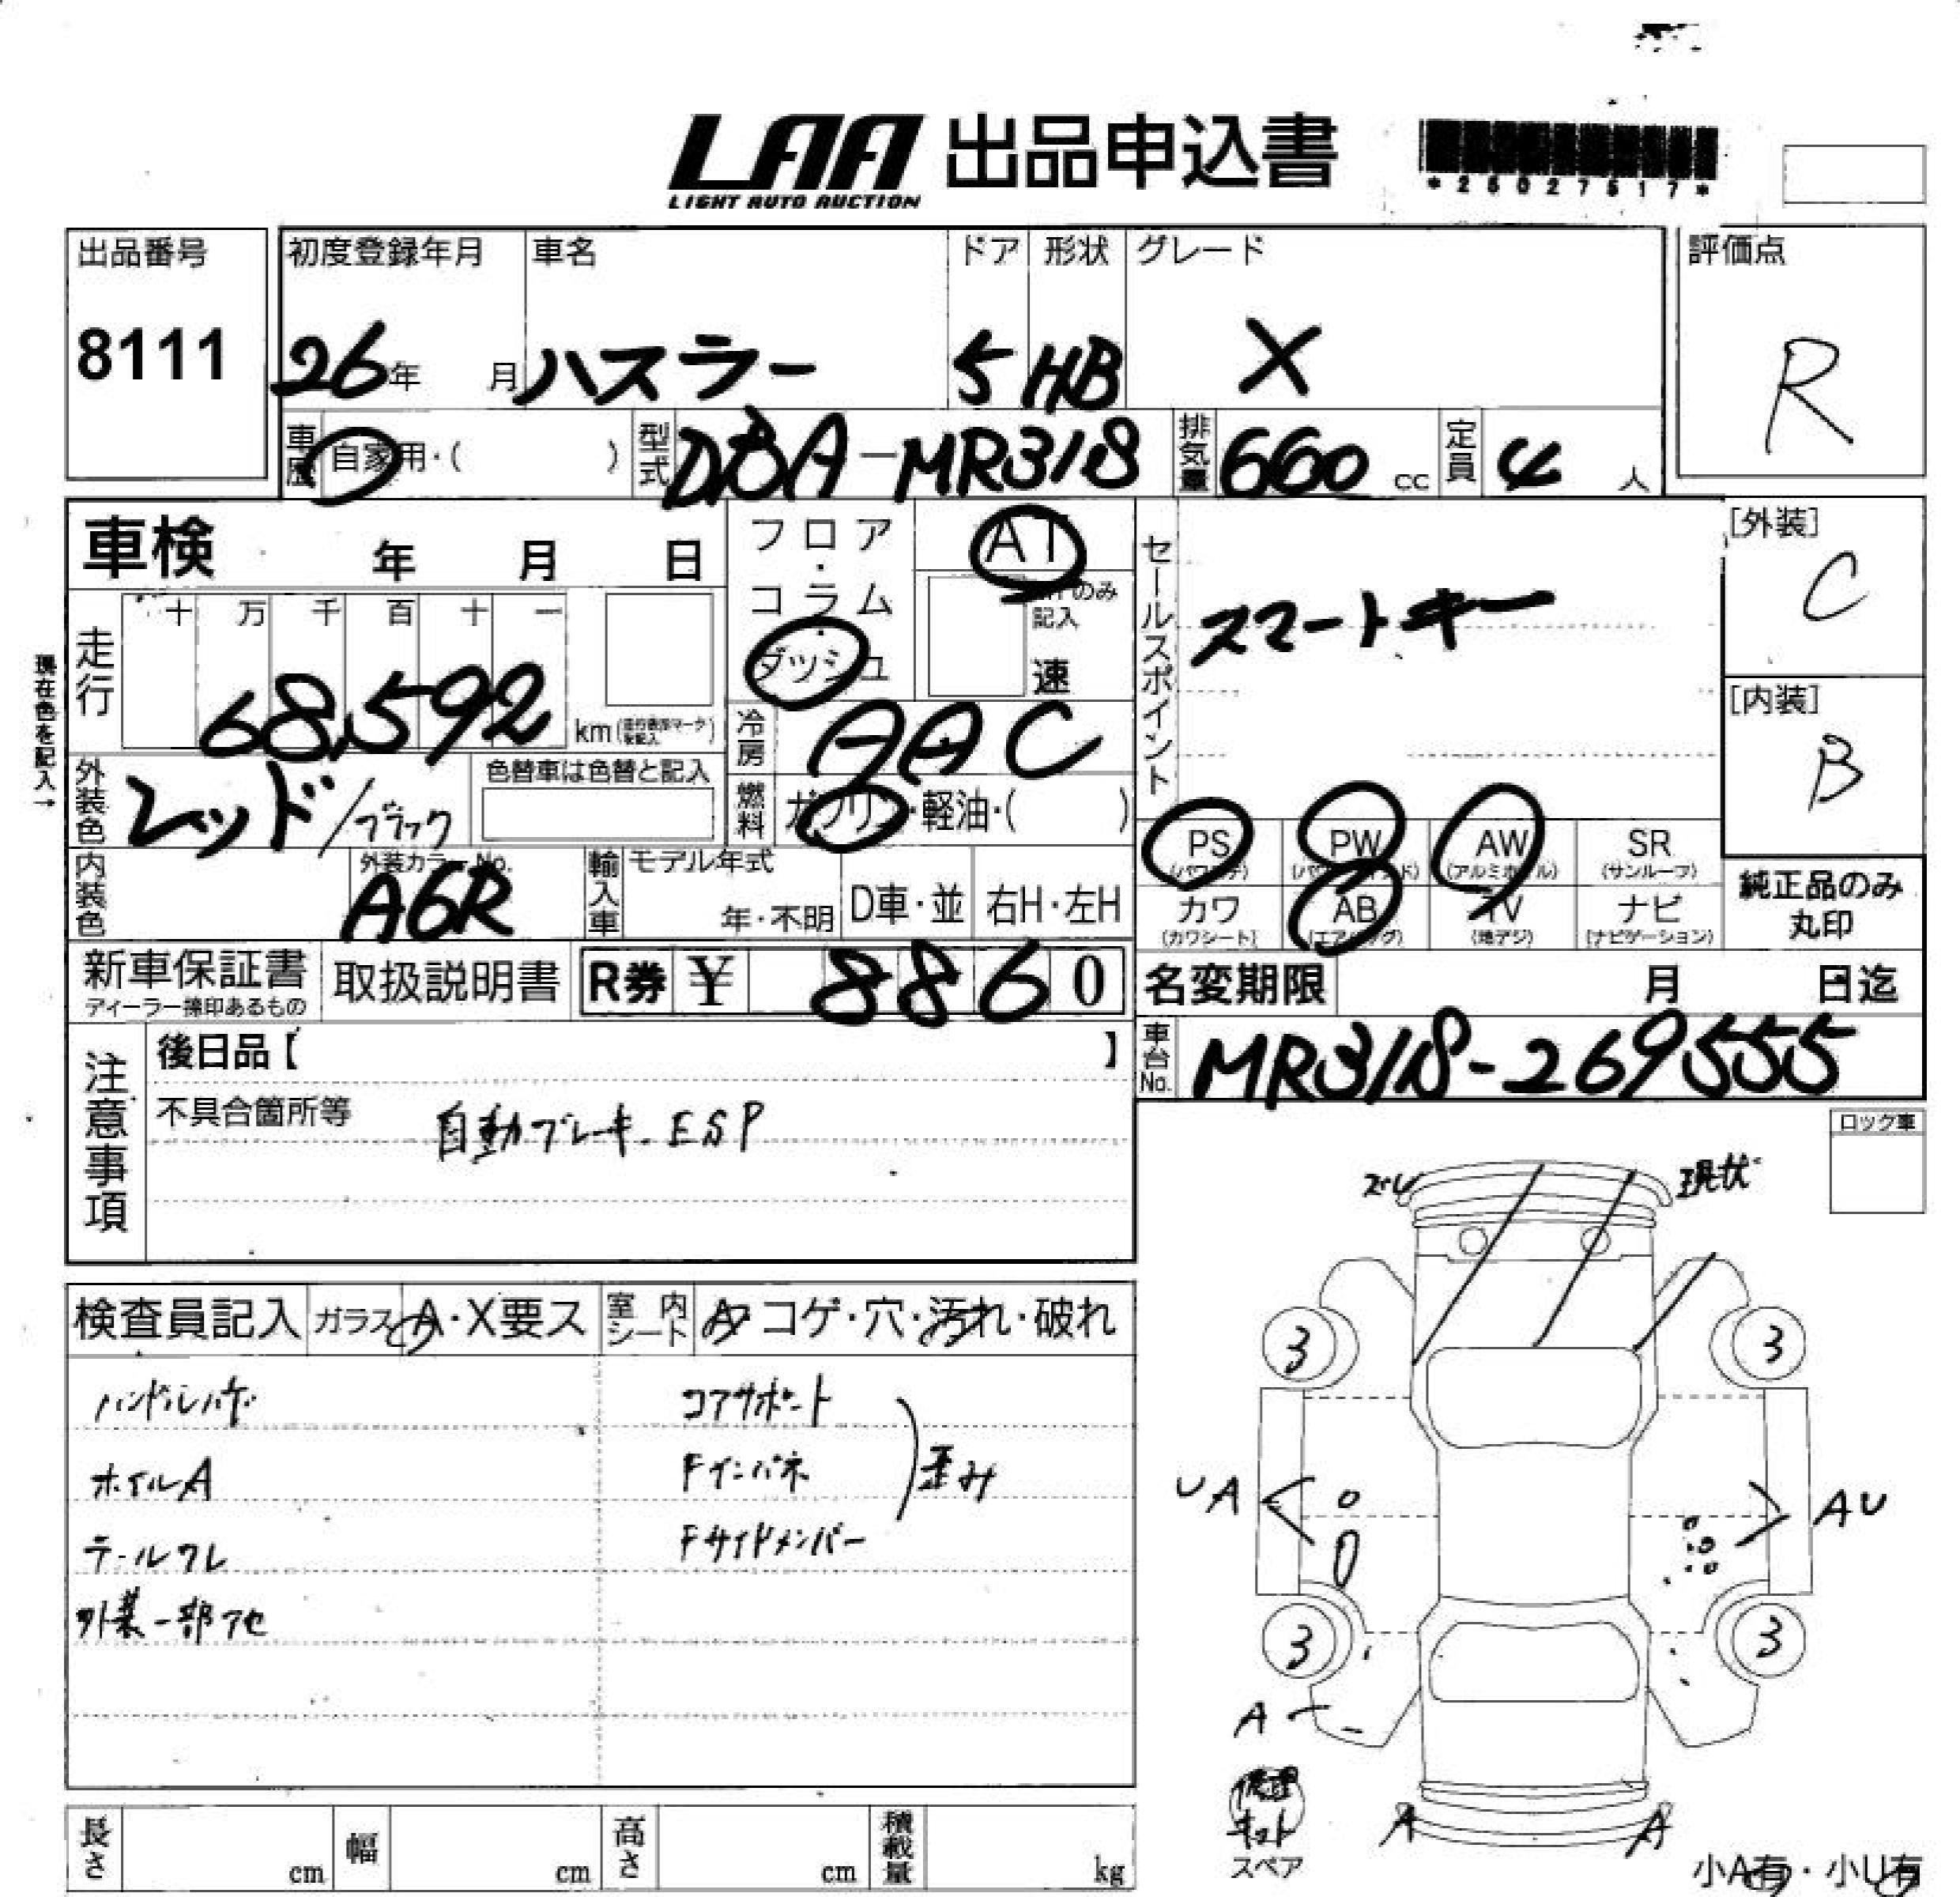 LAA 出品申込書
LIGHT AUTO AUCTION
*25027517*
出品番号
8111
初度登録年月 車名 ドア 形状 グレード
26年 月 ハスラー 5 HB X
評価点
R
車歴 自家用・( ) 型式 DBA-MR31S 排気量 660 cc 定員 4 人
車検 年 月 日
フロア・コラム・ダッシュ
AT
MTのみ記入
速
現在色を記入→
走行 十 万 千 百 十 一
68,592 km
冷房 AAC
燃料 ガソリン・軽油・( )
外装色 レッド/ブラック
色替車は色替と記入
内装色
外装カラーNo.
A6R
輸入車 モデル年式
年・不明 D車・並 右H・左H
セールスポイント
スマートキー
[外装]
C
[内装]
B
PS PW AW SR
(パワステ) (パワーウインド) (アルミホイル) (サンルーフ)
カワ AB TV ナビ
(カワシート) (エアバッグ) (地デジ) (ナビゲーション)
純正品のみ
丸印
新車保証書
ディーラー捺印あるもの
取扱説明書 R券 ¥ 8860
名変期限 月 日迄
車台No. MR31S-269555
注意事項
後日品【 】
不具合箇所等
自動ブレーキ. ESP
ロック車
検査員記入 ガラス A・X要ス 室内シート A・コゲ・穴・汚れ・破れ
ハンドルハゲ コアサポート
ホイルA Fインパネ 歪み
テールワレ Fサイドメンバー
外装一部アセ
ズレ 現状
3 3
UA AU
3 3
A
修理
キット
スペア
A A
小A有・小U有
長さ cm 幅 cm 高さ cm 積載量 kg